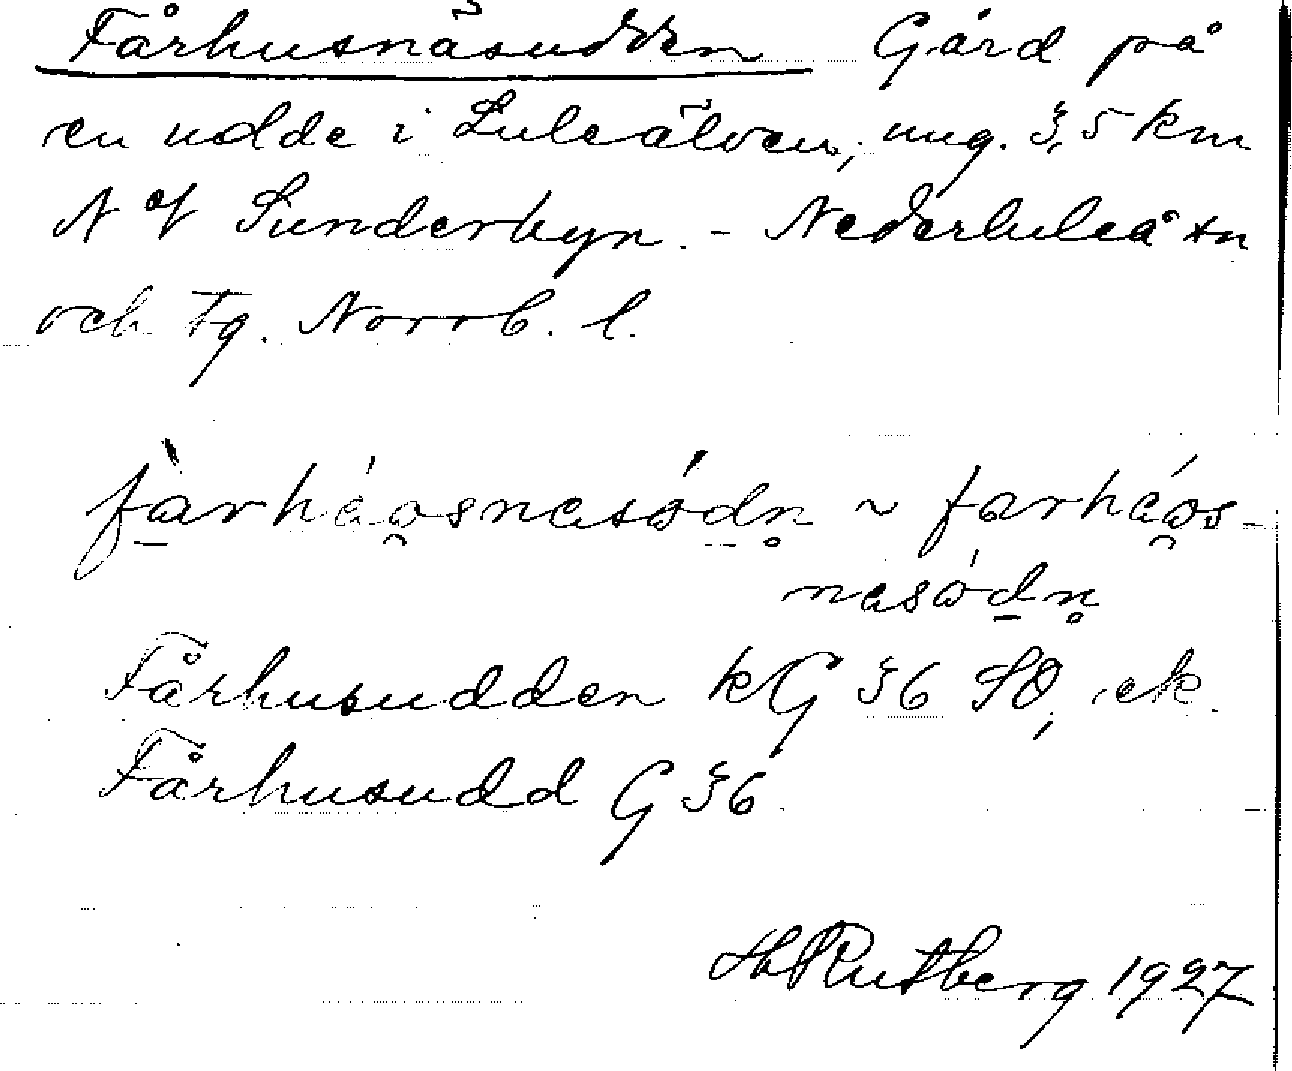 Fårhusnäsudden Gård på
en udde i Luleälven, ung. 3,5 km
N of Sunderbyn. - Nederluleå sn
och tg. Norrb. l.
fàrháo̯snasódn̥ ~ farháo̯s-
nasódn̥
Fårhusudden kG 36 SO, ek.
Fårhusudd G 36
H Rutberg 1927